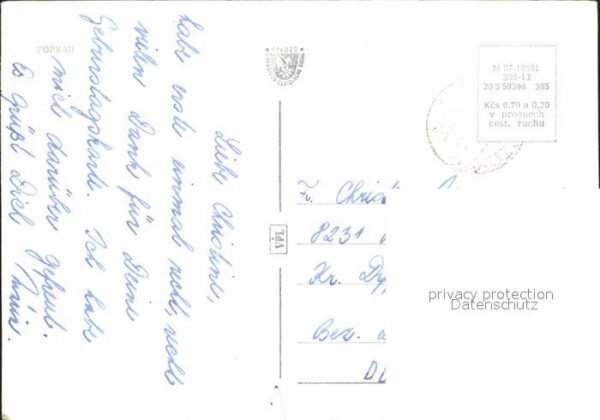 POPRAD
Liebe Christine,
habe erst einmal recht, recht
vielen Dank für Deine
Geburtstagskarte. Ich habe
mich darüber gefreut.
Es grüßt Dich
M 07-12051
303-13
20 3 50596 305
Kčs 0.70 a 0,20
v prospech
cest. ruchu
VPL
Fr. Christ
8231
Kr. Dip
Bez.
D
privacy protection
Datenschutz